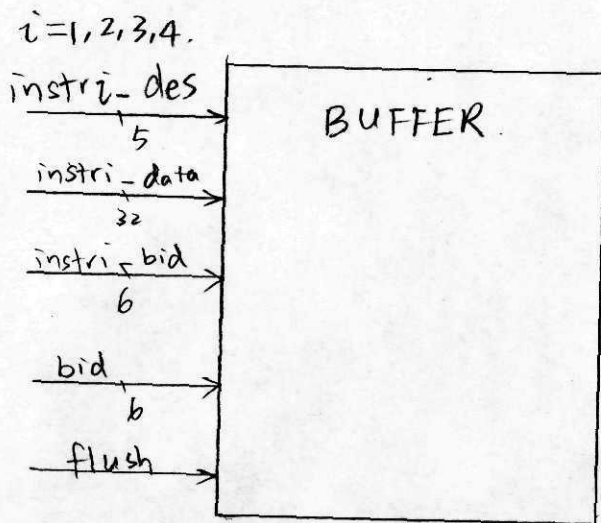 i=1,2,3,4.
instri_des
5
BUFFER.
instri_data
32
instri_bid
6
bid
6
flush